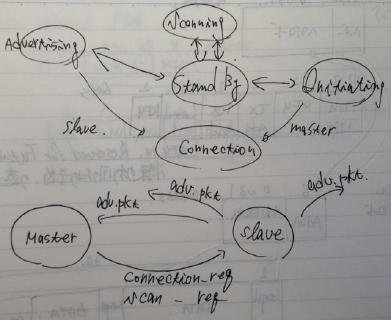 Scanning
Advertising
Stand By
Initiating
slave.
master
Connection
adv.pkt
adv.pkt.
adv.pkt
Master
slave
Connection_req
scan_req